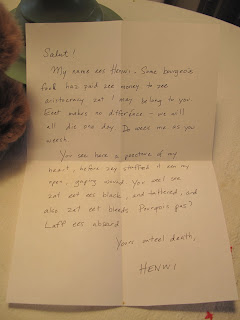 Salut!
My name ees Henwi. Some bourgeois
fool has paid zee money to zee
aristocracy zat I may belong to you.
Eeet makes no difference – we will
all die one day. Do weeth me as you
weesh.
You zee here a peecture of my
heart, before zey stuffed it een my
open, gaping wound. You weel zee
zat eet ees black, and tattered, and
also zat eet bleeds. Pourquoi pas?
Laff ees absurd.
Yours unteel death,
HENWI